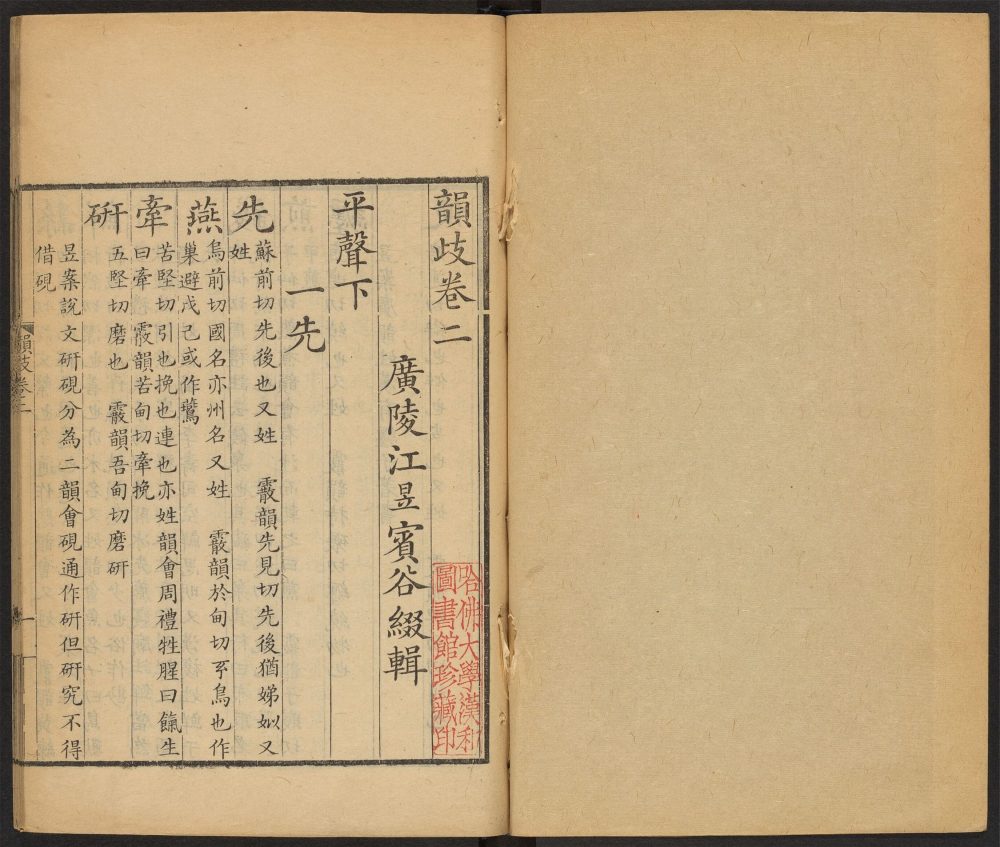 韻歧卷二
哈佛大學漢和
圖書館珍藏印
廣陵江昱賓谷綴輯
平聲下
一先
先
蘇前切先後也又姓 霰韻先見切先後猶娣姒又
姓
燕
烏前切國名亦州名又姓 霰韻於甸切鳥也作
巢避戊己或作鷰
牽
苦堅切引也挽也連也亦姓韻會周禮牲腥曰餼生
曰牽 霰韻苦甸切牽挽
硏
五堅切磨也 霰韻吾甸切磨研
昱案說文研硯分為二韻會硯通作研但研究不得
借硯
韻歧卷二
一